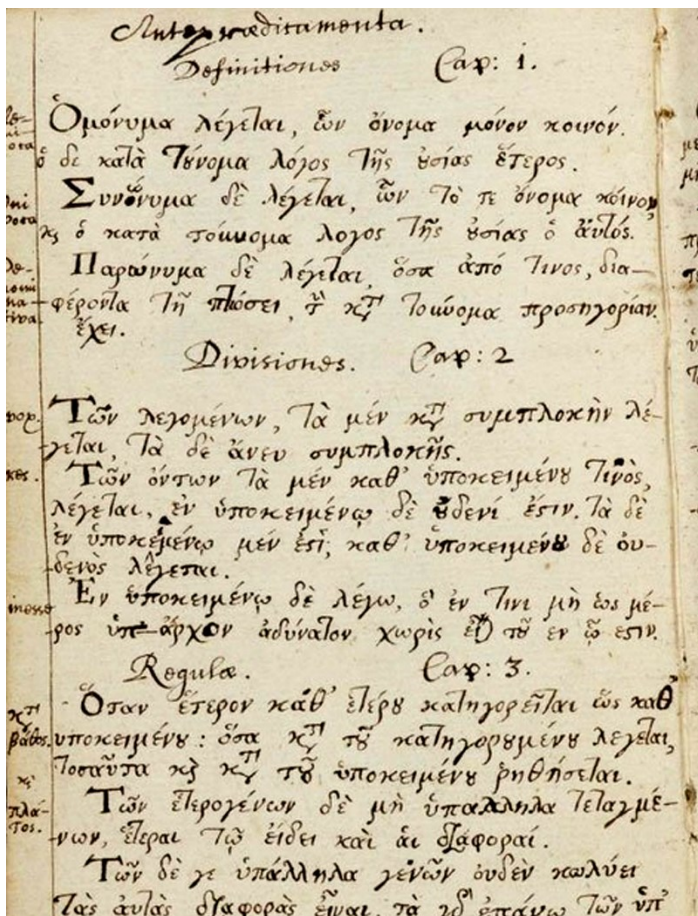 Antepraedicamenta.
Definitiones Cap: 1.
Ὁμόνυμα λέγεται, ὧν ὄνομα μόνον κοινόν.
ὁ δε κατὰ τȣ̓́νομα λόγος τῆς ȣσίας ἕτερος.
Συνώνυμα δὲ λέγεται, ὧν τὸ τε ὄνομα κοίνον,
ϗ ὁ κατὰ τοὔνομα λογος τῆς ȣσίας ὁ ἀυτός.
Παρώνυμα δὲ λέγεται, ὅσα από τινος, δια-
φέροντα τῆ πτώσει, τ̀ κτ̀ τοὔνομα προσηγορίαν
ἔχει.
Divisiones. Cap: 2
Τῶν λεγομένων, τὰ μέν κτ̀ συμπλοκὴν λέ-
γεται, τὰ δὲ ἄνευ συμπλοκῆς.
Τῶν ὄντων τὰ μέν καθ' ὑποκειμένȣ τινὸς,
λέγεται, εν ὑποκειμένῳ δὲ ȣδενί ἐστιν. τὰ δὲ
ἐν ὑποκειμένῳ μέν ἐστὶ, καθ' ὑποκειμένȣ δὲ ου-
δενὸς λέγεται.
Ἐν ὑποκειμένῳ δὲ λέγω, ὃ ἐν τινι μὴ ὡς μέ-
ρος ὑπάρχον αδύνατον χωρὶς εἶ) τȣ͂ εν ᾧ εστιν.
Regulæ. Cap: 3.
Ὅταν ἕτερον κάθ' ετέρȣ κατηγορεῖται ὡς καθ'
υποκειμένȣ: ὅσα κτ̀ τȣ͂ κατηγορȣμένȣ λεγεται,
τοσαῦτα ϗ κτ̀ τȣ͂ ὑποκειμένȣ ῥηθήσεται.
κτ̀
βάθος.
ϗ
πλά-
τος.
Τῶν ἑτερογένων δὲ μὴ ὑπάλληλα τεταγμέ-
νων, ἕτεραι τῷ ἐίδει καὶ ἁι διαφοραί.
Τῶν δὲ γε ὑπάλληλα γενῶν ουδὲν κωλύει
τὰς ἀυτὰς διαφορὰς εἶναι, τὰ γδ̀ επάνω τῶν ὑπ'